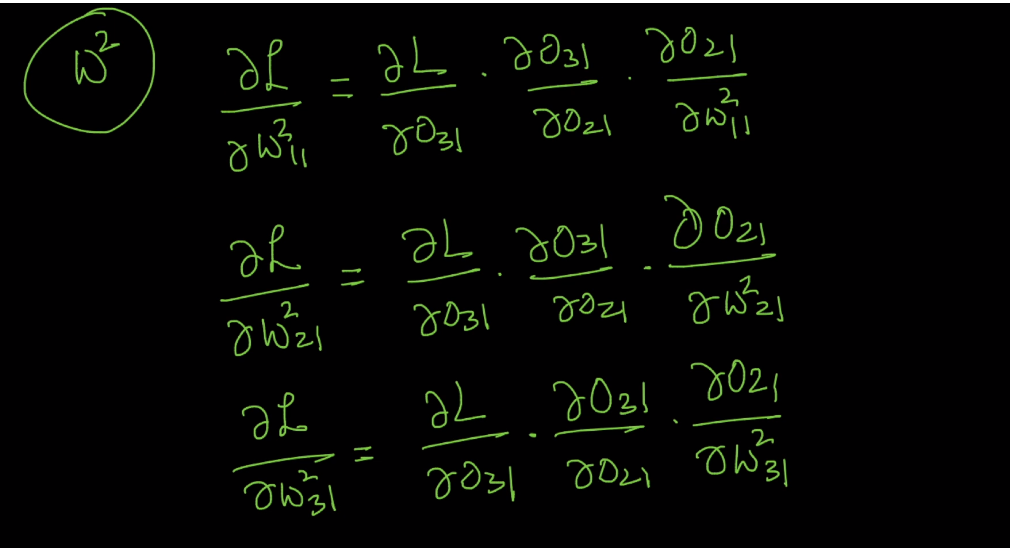 w² ∂L/∂w²₁₁ = ∂L/∂O₃₁ · ∂O₃₁/∂O₂₁ · ∂O₂₁/∂w²₁₁
∂L/∂w²₂₁ = ∂L/∂O₃₁ · ∂O₃₁/∂O₂₁ · ∂O₂₁/∂w²₂₁
∂L/∂w²₃₁ = ∂L/∂O₃₁ · ∂O₃₁/∂O₂₁ · ∂O₂₁/∂w²₃₁